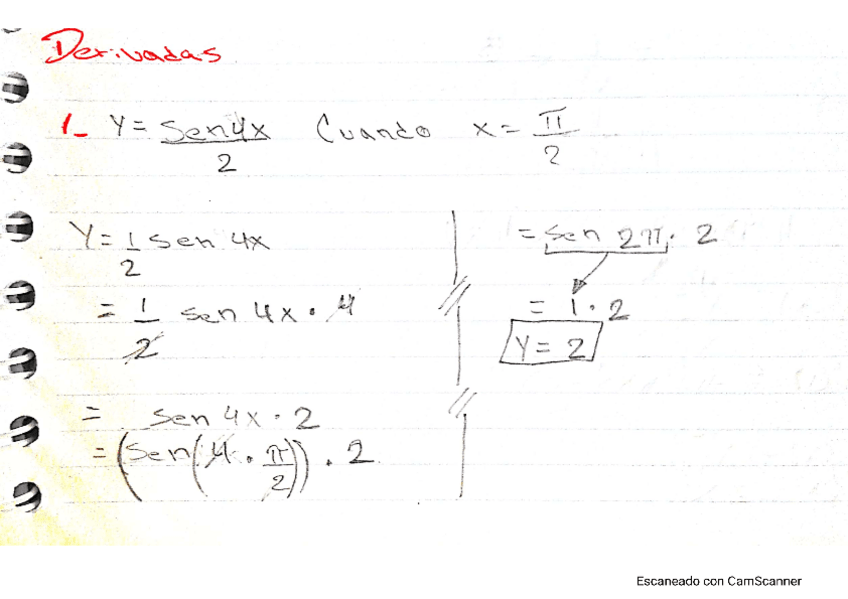 Derivadas
1_ Y = sen4x / 2 Cuando x = π/2
Y = 1/2 sen 4x
= 1/2 sen 4x · 4
= sen 4x · 2
= (sen(4 · π/2)) · 2
= sen 2π · 2
= 1 · 2
Y = 2
Escaneado con CamScanner